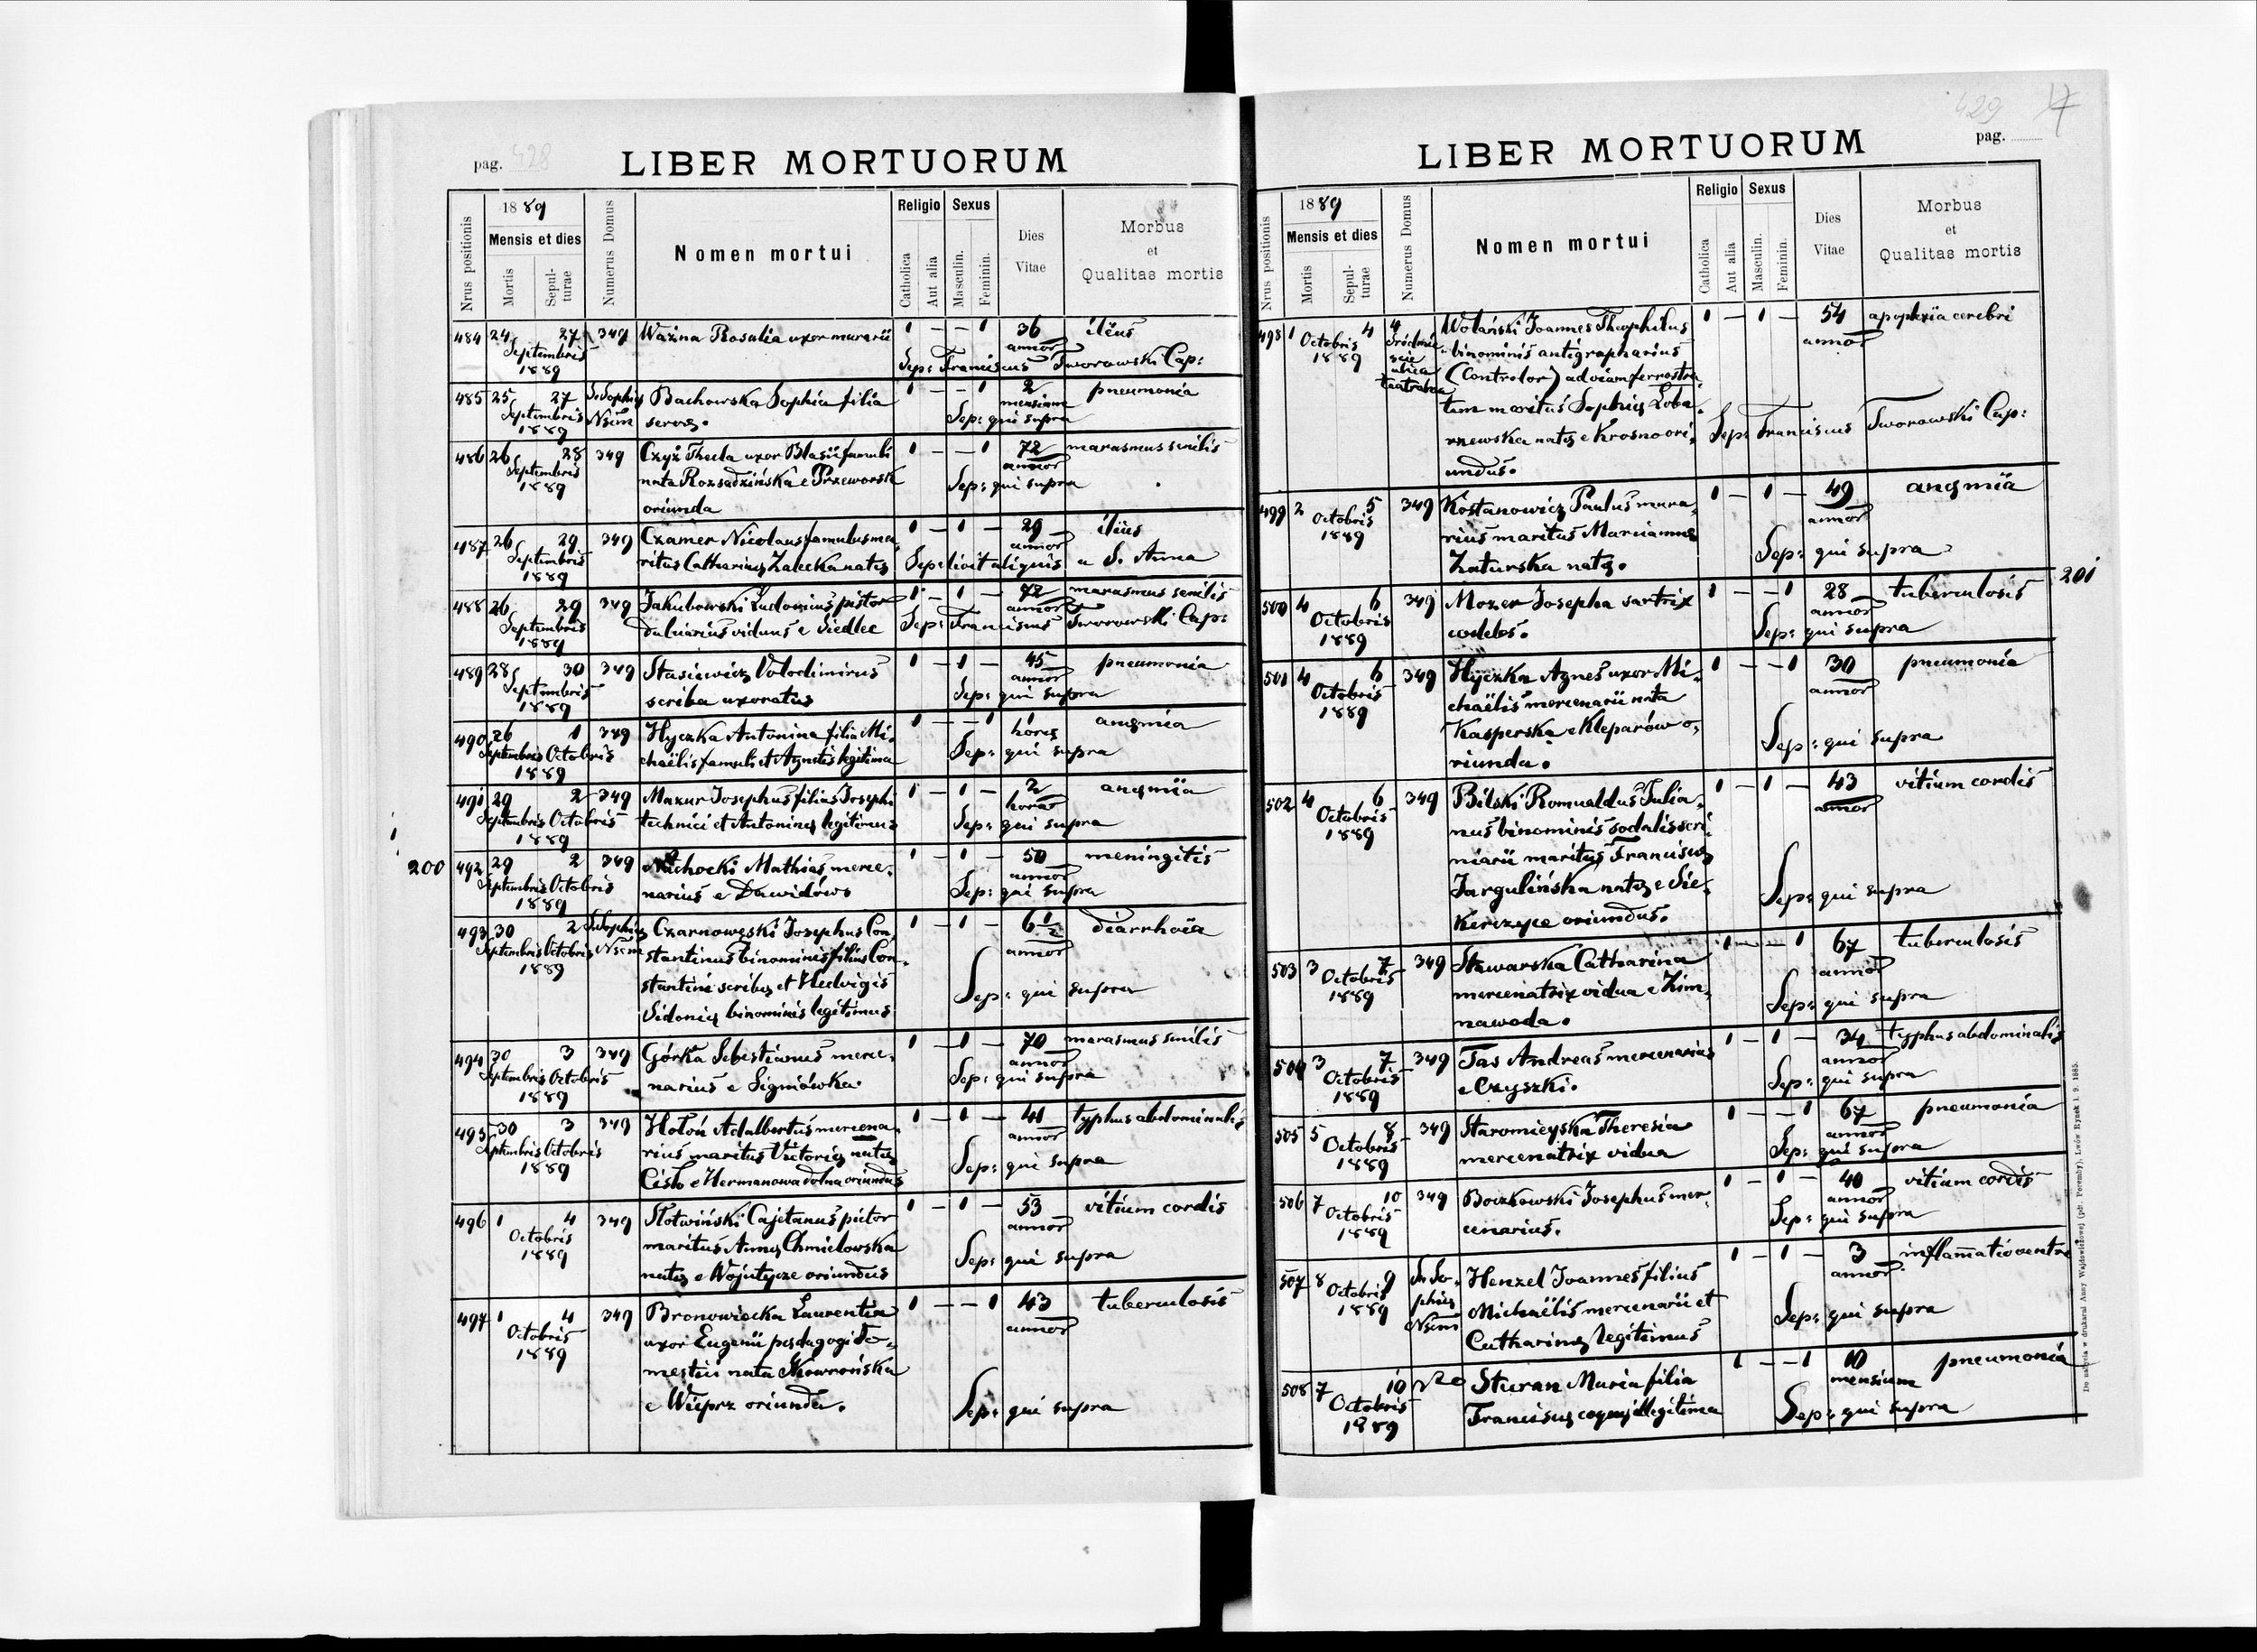 pag. 428
LIBER MORTUORUM
Nrus positionis
1889
Mensis et dies
Mortis
Sepulturae
Numerus Domus
Nomen mortui
Religio
Catholica
Aut alia
Sexus
Masculin.
Feminin.
Dies
Vitae
Morbus
et
Qualitas mortis
484 24 27 349 Ważna Rosalia uxor murarii 1 – – 1 36 ileus
Septembris annor
1889 Sep: Franciscus Tworowski Cap:
485 25 27 S. Sophię Bachowska Sophia filia 1 – – 1 2 pneumonia
Septembris Nsem servę. mensium
1889 Sep: qui supra
486 26 28 349 Czyż Thecla uxor Blasii famuli 1 – – 1 72 marasmus senilis
Septembris nata Rozsadzińska e Przeworsk annor
1889 oriunda Sep: qui supra
487 26 29 349 Czamer Nicolaus famulus ma- 1 – 1 – 29 ileus
Septembris ritus Catharinę Zalecka natę annor
1889 Sep: livit aliquis a S. Anna
488 26 29 349 Jakubowski Ludovicus pistor 1 – 1 – 72 marasmus senilis
Septembris dulciarius viduus e Siedlce annor
1889 Sep: Franciscus Tworowski Cap:
489 28 30 349 Stasiewicz Volodimirus 1 – 1 – 45 pneumonia
Septembris scriba uxoratus annor
1889 Sep: qui supra
490 26 1 349 Hyczka Antonina filia Mi- 1 – – 1 1 anęmia
Septembris Octobris chaëlis famuli et Agnetis legitima horę
1889 Sep: qui supra
491 29 2 349 Mazur Josephus filius Josephi 1 – 1 – 2 anęmia
Septembris Octobris technici et Antoninę legitimus horar
1889 Sep: qui supra
200 492 29 2 349 Machocki Mathias merce- 1 – 1 – 50 meningitis
Septembris Octobris narius e Dawidów annor
1889 Sep: qui supra
493 30 2 S. Sophię Czarnowęski Josephus Con- 1 – 1 – 6 1/2 diarrhoëa
Septembris Octobris Nsem stantinus binominis filius Con- annor
1889 stantini scribę et Hedvigis
Sidonię binominis legitimus Sep: qui supra
494 30 3 349 Górka Sebestianus merce- 1 – 1 – 70 marasmus senilis
Septembris Octobris narius e Signiówka. annor
1889 Sep: qui supra
495 30 3 349 Hołoń Adalbertus mercena- 1 – 1 – 41 typhus abdominalis
Septembris Octobris rius maritus Victorię natę annor
1889 Cisło e Hermanowa dolna oriundus Sep: qui supra
496 1 4 349 Słotwiński Cajetanus pictor 1 – 1 – 53 vitium cordis
Octobris maritus Annę Chmielowska annor
1889 natę e Wojutycze oriundus Sep: qui supra
497 1 4 349 Bronowiecka Laurentia 1 – – 1 43 tuberculosis
Octobris uxor Eugenii pędagogi do- annor
1889 mestici nata Skowrońska
e Wieprz oriunda. Sep: qui supra
429 17
pag.
LIBER MORTUORUM
Nrus positionis
1889
Mensis et dies
Mortis
Sepulturae
Numerus Domus
Nomen mortui
Religio
Catholica
Aut alia
Sexus
Masculin.
Feminin.
Dies
Vitae
Morbus
et
Qualitas mortis
498 1 4 4 Wolański Joannes Theophilus 1 – 1 – 54 apoplexia cerebri
Octobris binominis antigrapharius annor
1889 ulica (Controlor) ad viam ferrostra-
teatralna tum maritus Sophię Łoba-
rzewska natę e Krosno ori- Sep: Franciscus Tworowski Cap:
undus.
499 2 5 349 Kostanowicz Paulus mura- 1 – 1 – 49 anęmia
Octobris rius maritus Mariannę annor
1889 Zaturska natę. Sep: qui supra
201
500 4 6 349 Mozer Josepha sartrix 1 – – 1 28 tuberculosis
Octobris coelebs. annor
1889 Sep: qui supra
501 4 6 349 Hyczka Agnes uxor Mi- 1 – – 1 30 pneumonia
Octobris chaëlis mercenarii nata annor
1889 Kasperska e Kleparów o-
riunda. Sep: qui supra
502 4 6 349 Bilski Romualdus Julia- 1 – 1 – 43 vitium cordis
Octobris nus binominis sodalis scri- annor
1889 niarii maritus Franciscę
Jargulińska natę e Sie-
kierzyce oriundus. Sep: qui supra
503 3 7 349 Stawarska Catharina 1 – – 1 67 tuberculosis
Octobris mercenatrix vidua e Zim- annor
1889 nawoda. Sep: qui supra
504 3 7 349 Tas Andreas mercenarius 1 – 1 – 34 typhus abdominalis
Octobris e Czyszki. annor
1889 Sep: qui supra
505 5 8 349 Staromieyska Theresia 1 – – 1 67 pneumonia
Octobris mercenatrix vidua annor
1889 Sep: qui supra
506 7 10 349 Boczkowski Josephus mer- 1 – 1 – 40 vitium cordis
Octobris cenarius. annor
1889 Sep: qui supra
507 8 9 S. So- Henzel Joannes filius 1 – 1 – 3 inflamatio ventri
Octobris phię Michaëlis mercenarii et annor
1889 Nsem Catharinę legitimus Sep: qui supra
508 7 10 Sturan Maria filia 1 – – 1 10 pneumonia
Octobris Franciscę coquę illegitima mensium
1889 Sep: qui supra
Do nabycia w drukarni Anny Wajdowiczowej (pdr. Poremby), Lwów Rynek l. 9. 1885.